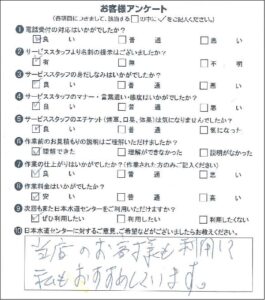 お客様アンケート
(各項目につきまして、該当する□の中に✓をご記入ください。)
❶電話受付の対応はいかがでしたか?
☑良い □普通 □悪い
❷サービススタッフより名刺の提示はございましたか?
☑有 □無 □不明
❸サービススタッフの身だしなみはいかがでしたか?
☑良い □普通 □悪い
❹サービススタッフのマナー・言葉遣い・態度はいかがでしたか?
☑良い □普通 □悪い
❺サービススタッフのエチケット(煙草、口臭、体臭)は気になりませんでしたか?
☑良い □普通 □気になった
❻作業前のお見積もりの説明はご理解いただけましたか?
☑理解できた □理解ができなかった □説明がなかった
❼作業の仕上がりはいかがでしたか?(作業された方のみご記入ください)
☑良い □普通 □悪い
❽作業料金はいかがでしたか?
☑安い □普通 □高い
❾次回もまた日本水道センターをご利用いただけますか?
☑ぜひ利用したい □利用したい □利用したくない
❿日本水道センターに対するご意見、ご希望などがございましたらお書きください。
当店のお客様も利用して
私もおすすめしています。